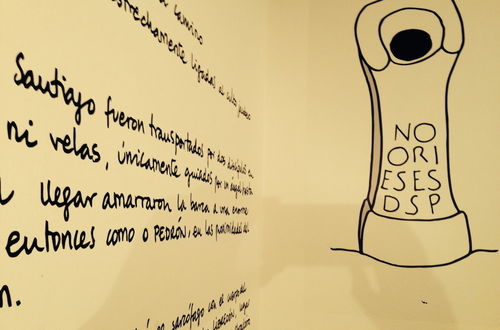 camino
estrechamente ligadas al culto
Santiago fueron transportados por dos discípulos en
ni velas, únicamente guiados por un ángel hasta
llegar amarraron la barca a una enorme
entonces como O PEDRÓN, en las proximidades del
n.
en sarcófago con el cuerpo del
NO
ORI
ESES
DSP